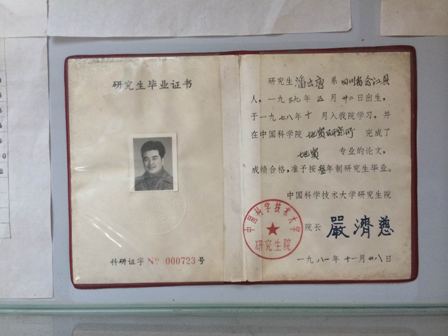 研究生毕业证书
科研证字 № 000723 号
研究生 潘云唐 系 四川省合江县
人，一九三九年 三 月 廿二 日出生，
于一九七八年 十 月入我院学习，并
在中国科学院 地质研究所 完成了
地质 专业的论文，
成绩合格，准予按叁年制研究生毕业。
中国科学技术大学研究生院
院长 嚴濟慈
一九八一年十一月廿八日
中国科学技术大学
研究生院